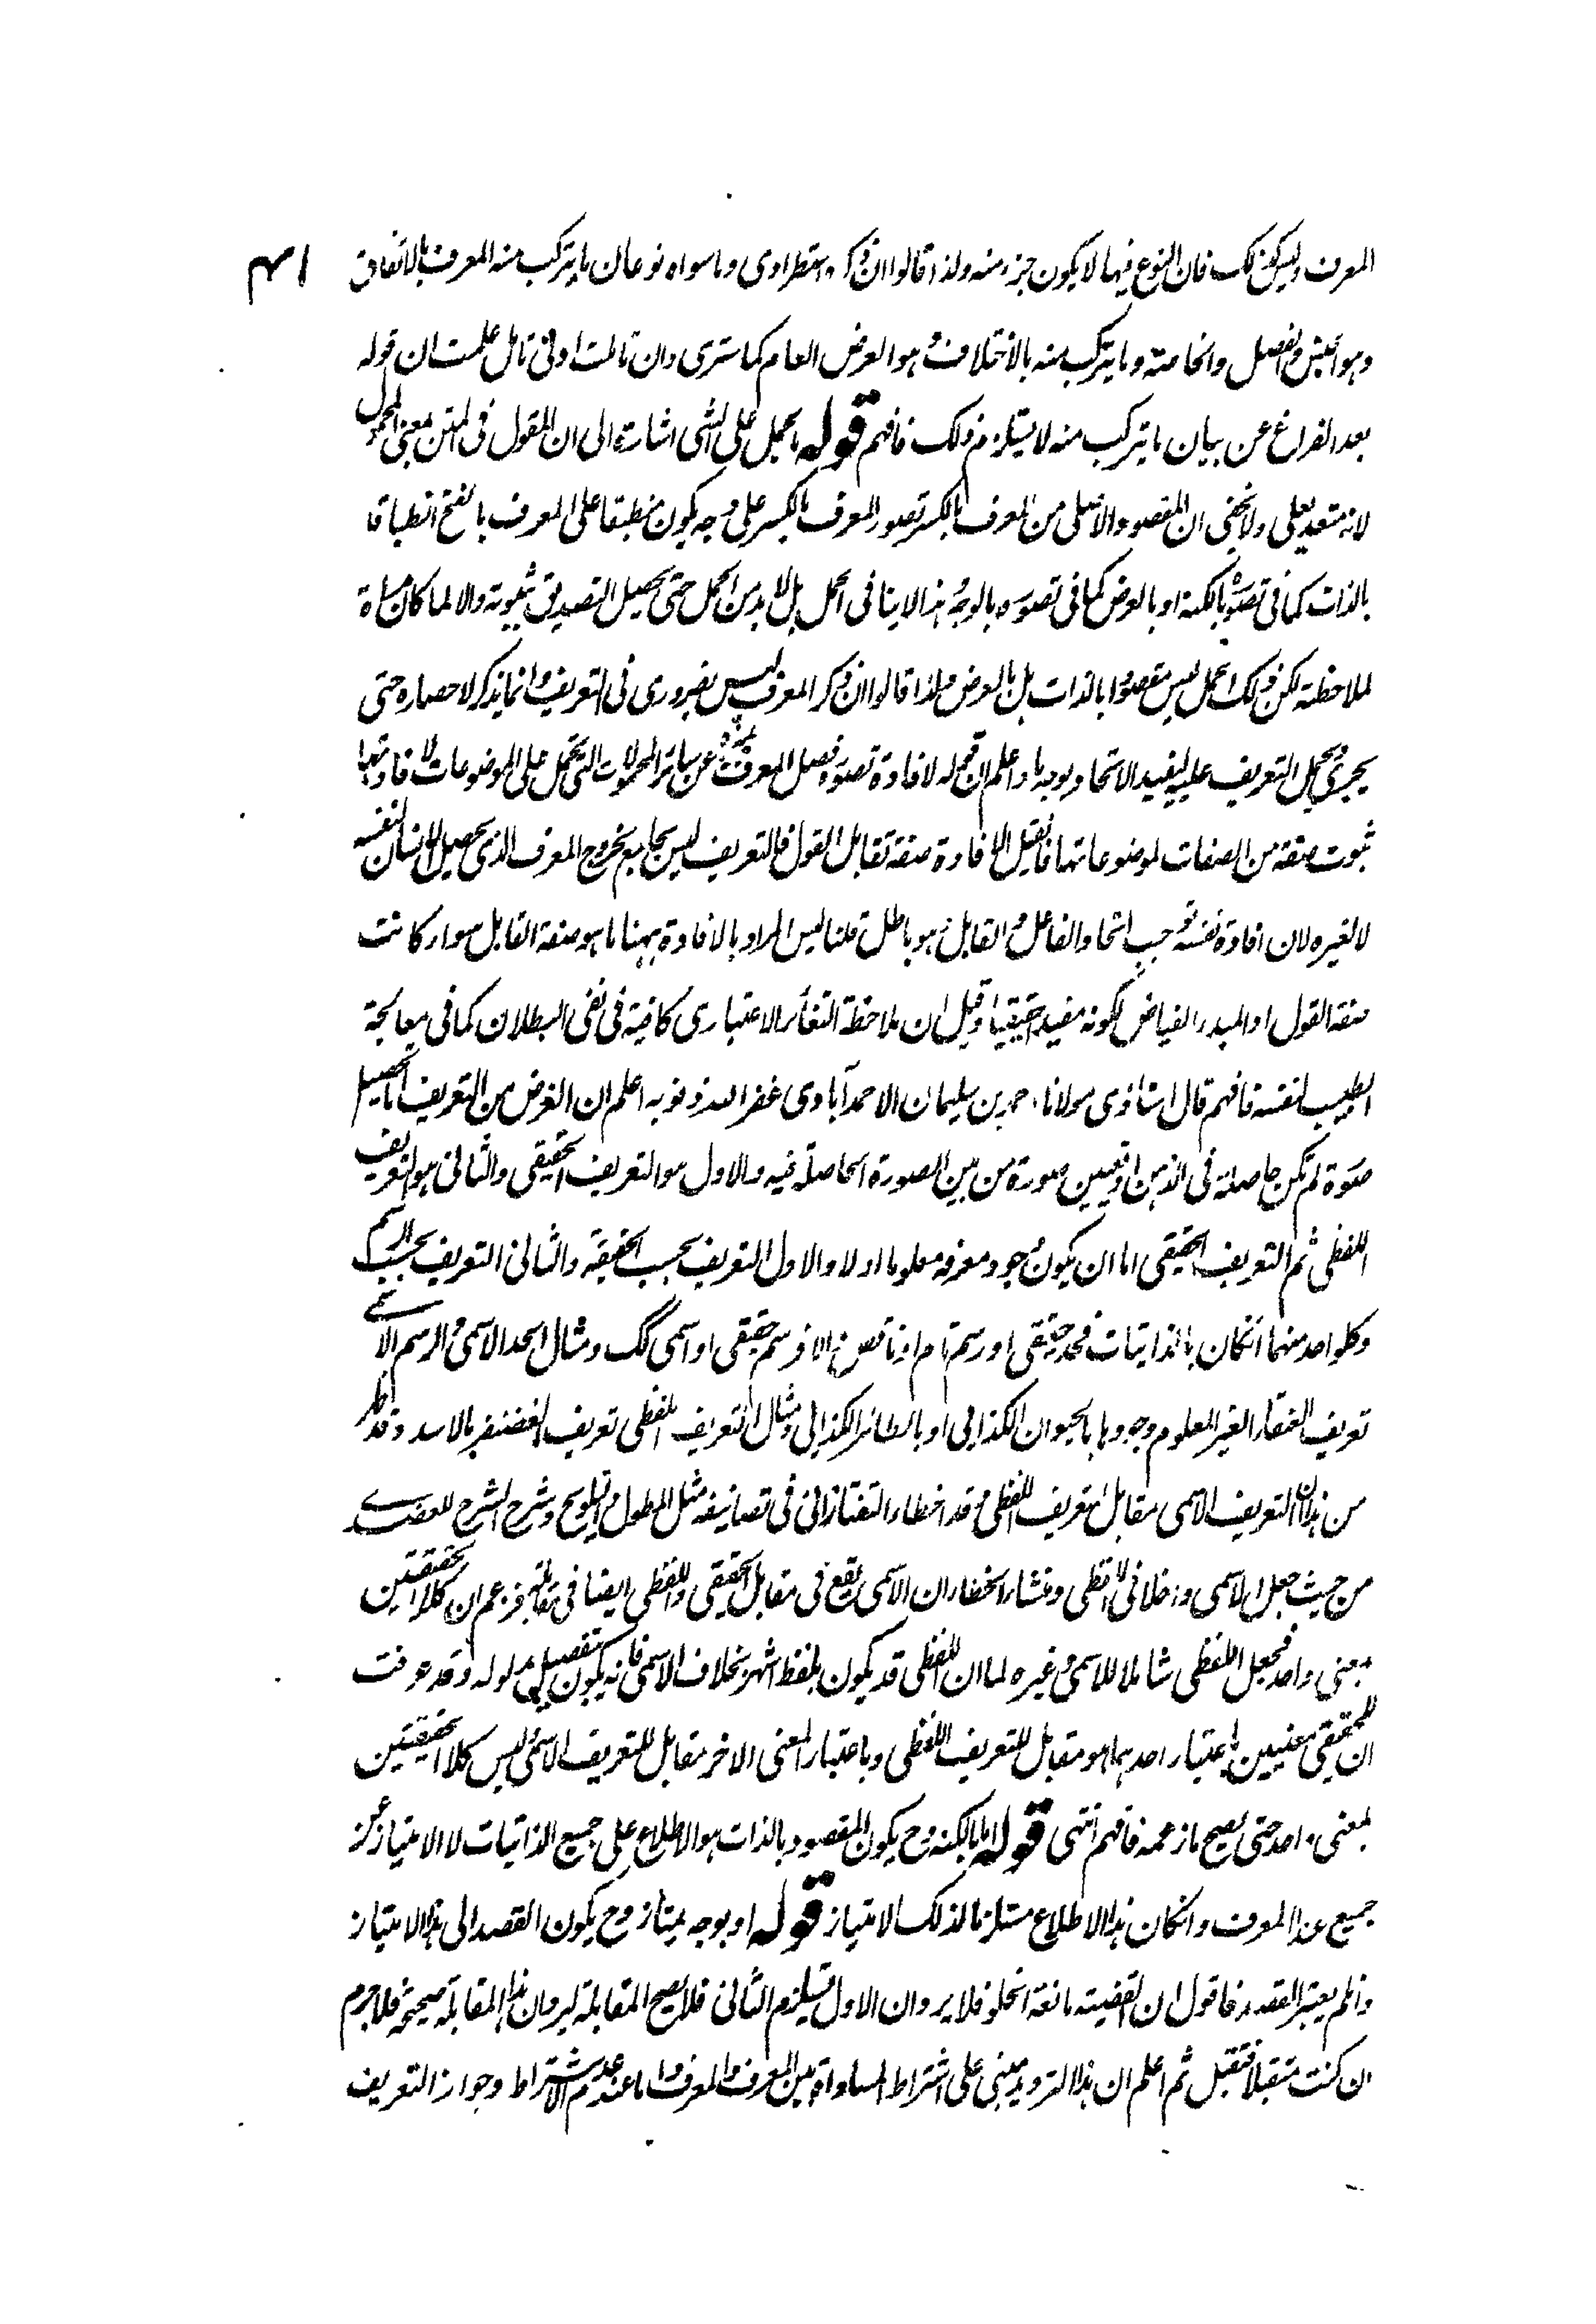 المعرف وليس كذلك فان النوع فيها لا يكون جزء منه ولذا قالوا ان ذكره استطرادى وما سواه نوعان ما يتركب منه المعرف بالاتفاق
۴۱
وهو الجنس والفصل والخاصة وما يتركب منه بالاختلاف وهو العرض العام كما سترى وان تاملت ادنى تامل علمت ان قوله
بعد الفراغ عن بيان ما يتركب منه لا يستلزم ذلك فافهم قوله ما يحمل على الشى اشارة الى ان المقول فى المتن بمعنى المحمول
لانه متعد بعلى ولا يخفى ان المقصود الاصلى من المعرف بالكسر تصور المعرف بالكسر على وجه يكون منطبقا على المعرف بالفتح انطباقا
بالذات كما فى تصوره بالكنه او بالعرض كما فى تصوره بالوجه وهذا لا ينافى الحمل بل لا بد من الحمل حتى يحصل التصديق بثبوته والا لما كان مراة
لملاحظته لكن ذلك الحمل ليس مقصودا بالذات بل بالعرض ولذا قالوا ان ذكر المعرف ليس بضرورى فى التعريف وانما يذكر لاحضاره حتى
يجرى ويحمل التعريف عليه ليفيد الاتحاد بوجه ما واعلم ان قوله لافادة تصوره فصل المعرف عن سائر المحمولات التى تحمل على الموضوعات لافادتها
ثبوت صفة من الصفات لموضوعاتها فان قيل الافادة صفة تقابل القول فالتعريف ليس بجامع لخروج المعرف الذى يحصل للانسان لنفسه
لا لغيره لان افادة نفسه توجب اتحاد الفاعل والقابل وهو باطل قلنا ليس المراد بالافادة ههنا ما هو صفة القابل سواء كانت
صفة القول او المبدء الفياض لكونه مفيدا حقيقيا وقيل ان ملاحظة التغائر الاعتبارى كافية فى نفى البطلان كما فى معالجة
الطبيب لنفسه فافهم قال استاذى مولانا احمد بن سليمان الاحمدآبادى غفر الله ذنوبه اعلم ان الغرض من التعريف اما تحصيل
صورة لم تكن حاصلة فى الذهن او تعيين صورة من بين الصورة الحاصلة فيه والاول هو التعريف الحقيقى والثانى هو التعريف
اللفظى ثم التعريف الحقيقى اما ان يكون وجود معرفه معلوما اولا والاول التعريف بحسب الحقيقة والثانى التعريف بحسب الرسم
وكل واحد منهما انكان بالذاتيات فحد حقيقى او رسم تام او ناقص والا فرسم حقيقى او اسمى كك ومثال الحد الاسمى والرسم الاسمى
تعريف العنقاء الغير المعلوم وجودها بالحيوان الكذائى او بالطائر الكذائى ومثال التعريف اللفظى تعريف الغضنفر بالاسد وقد ظهر
من هذا ان التعريف الاسمى مقابل لتعريف اللفظى وقد اخطاء التفتازانى فى تصانيفه مثل المطول والتلويح وشرح الشرح للعضدى
من حيث جعل الاسمى داخلا فى اللفظى ومنشاء الخطاء ان الاسمى يقع فى مقابل الحقيقى واللفظى ايضا فى مقابلته فزعم ان كلا الحقيقتين
بمعنى واحد فجعل اللفظى شاملا للاسمى وغيره لما ان اللفظى قد يكون بلفظ اشهر بخلاف الاسمى فانه يكون تفصيل مدلوله وقد عرفت
ان للحقيقى معنيين باعتبار احدهما هو مقابل للتعريف اللفظى وباعتبار المعنى الاخر مقابل للتعريف الاسمى وليس كلا الحقيقتين
بمعنى واحد حتى يصح ما زعمه فافهم انتهى قوله اما بالكنه وح يكون المقصود بالذات هو الاطلاع على جميع الذاتيات لا الامتياز عن
جميع عدا المعرف وانكان هذا الاطلاع مستلزما لذلك الامتياز قوله او بوجه يمتاز وح يكون القصد الى هذا الامتياز
وان لم يعتبر القصد فاقول ان القضية مانعة الخلو فلا يرد ان الاول يستلزم الثانى فلا يصح المقابلة ليرد ان هذه المقابلة صحيحة فلا جرم
ان كنت متقبلا فتقبل ثم اعلم ان هذا الترديد مبنى على اشتراط المساواة بين المعرف والمعرف واما عند عدم الاشتراط وجواز التعريف